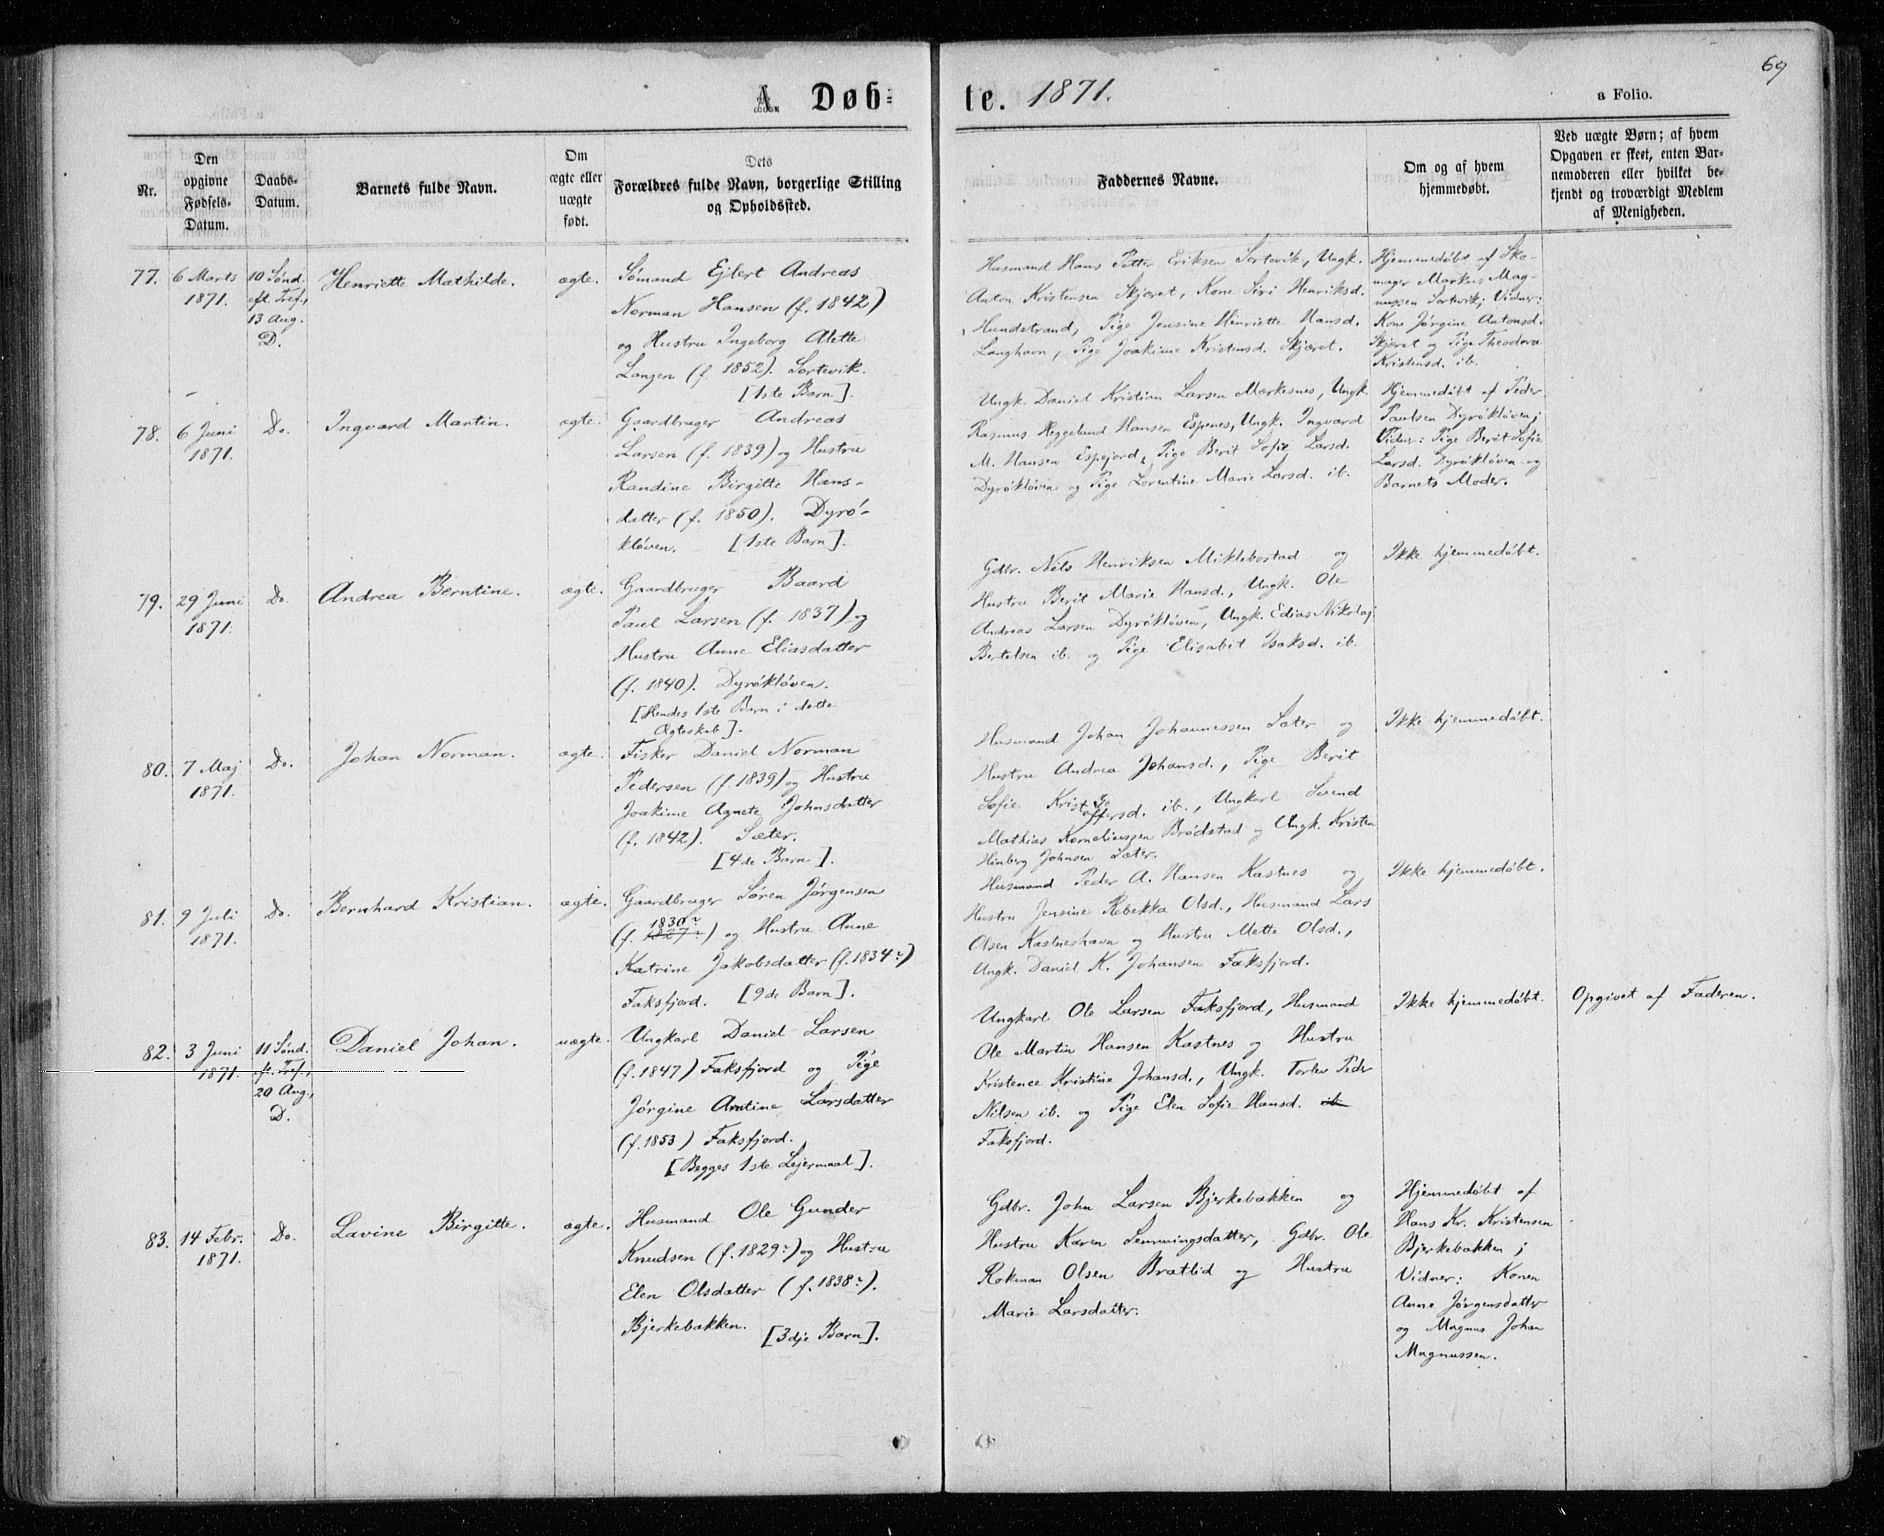 69
A. Døb=te. 1871.
a Folio.
Nr.
Den
opgivne
Fødsels-
Datum.
Daabs-
Datum.
Barnets fulde Navn.
Om
ægte eller
uægte
født.
Dets
Forældres fulde Navn, borgerlige Stilling
og Opholdssted.
Faddernes Navne.
Om og af hvem
hjemmedøbt.
Ved uægte Børn; af hvem
Opgaven er skeet, enten Bar-
nemoderen eller hvilket be-
kjendt og troværdigt Medlem
af Menigheden.
77.
6 Marts
1871.
10 Sønd.
eft. Tref.,
13 Aug.
D.
Henriette Mathilde.
ægte.
Sømand Ejlert Andreas
Norman Hansen (f. 1842)
og Hustru Ingeborg Alette
Langen (f. 1852). Sortevik.
[1ste Barn].
Husmand Hans Petter Eriksen Sortevik, Ungk.
Anton Kristensen Skjæret, Kone Siri Henriksd.
Hundstrand, Pige Jensine Henriette Hansd.
Langhavn, Pige Joakime Kristensd. Skjæret.
Hjemmedøbt af Sko-
mager Markus Mag-
nussen Sortevik; Vidner:
Kone Jørgine Antonsd.
Skjæret og Pige Theodora
Kristensd. ib.
78.
6 Juni
1871.
Do.
Ingvard Martin.
ægte.
Gaardbruger Andreas
Larsen (f. 1839) og Hustru
Randine Birgitte Hans-
datter (f. 1850). Dyrø-
kløven. [1ste Barn].
Ungk. Daniel Kristian Larsen Mærkesnes, Ungk.
Rasmus Heggelund Hansen Espenes, Ungk. Ingvard
M. Hansen Espejord, Pige Berit Sofie Larsd.
Dyrøkløven og Pige Lorentine Marie Larsd. ib.
Hjemmedøbt af Peder
Paulsen Dyrøkløven;
Vidner: Pige Berit Sofie
Larsd. Dyrøkløven og
Barnets Moder.
79.
29 Juni
1871.
Do.
Andrea Berntine.
ægte.
Gaardbruger Baard
Paul Larsen (f. 1837) og
Hustru Anne Eliasdatter
(f. 1840). Dyrøkløven.
[Hendes 1ste Barn i dette
Ægteskab].
Gdbr. Nils Henriksen Miklebostad og
Hustru Berit Marie Hansd., Ungk. Ole
Andreas Larsen Dyrøkløven, Ungk. Edias Nikolaj
Bertelsen ib. og Pige Elisabet Isaksd. ib.
Ikke hjemmedøbt.
80.
7 Maj
1871.
Do.
Johan Norman.
ægte.
Fisker Daniel Norman
Pedersen (f. 1839) og Hustru
Joakime Agnete Johnsdatter
(f. 1842). Sæter.
[4de Barn].
Husmand Johan Johannessen Sæter og
Hustru Andrea Johansd., Pige Berit
Sofie Kristoffersd. ib., Ungkarl Svend
Mathias Korneliussen Brødstad og Ungk. Kristen
Hinberg Johnsen Sæter.
Ikke hjemmedøbt.
81.
9 Juli
1871.
Do.
Bernhard Kristian.
ægte.
Gaardbruger Søren Jørgensen
1830?
(f. 1827?) og Hustru Anne
Katrine Jakobsdatter (f. 1834?)
Faksfjord. [9de Barn].
Husmand Peder A. Hansen Kastnes og
Hustru Jensine Rebekka Olsd., Husmand Lars
Olsen Kastneshavn og Hustru Mette Olsd.,
Ungk. Daniel K. Johansen Faksfjord.
Ikke hjemmedøbt.
82.
3 Juni
1871.
11 Sønd.
ft. Tref.,
20 Aug.,
D.
Daniel Johan.
uægte.
Ungkarl Daniel Larsen
(f. 1847) Faksfjord og Pige
Jørgine Antine Larsdatter
(f. 1853) Faksfjord.
[Begges 1ste Lejermaal].
Ungkarl Ole Larsen Faksfjord, Husmand
Ole Martin Hansen Kastnes og Hustru
Kristence Kristine Johansd., Ungk. Torlev Peder
Nilsen ib. og Pige Elen Sofie Hansd. ib
Faksfjord.
Ikke hjemmedøbt.
Opgivet af Faderen.
83.
14 Febr.
1871.
Do.
Lavine Birgitte.
ægte.
Husmand Ole Gunder
Knudsen (f. 1829?) og Hustru
Elen Olsdatter (f. 1838?).
Bjerkebakken. [3dje Barn].
Gdbr. John Larsen Bjerkebakken og
Hustru Karen Lemmingsdatter, Gdbr. Ole
Rokman Olsen Brætlid og Hustru
Marie Larsdatter.
Hjemmedøbt af
Hans Kr. Kristensen
Bjerkebakken;
Vidner: Konen
Anne Jørgensdatter
og Magnus Johan
Magnussen.